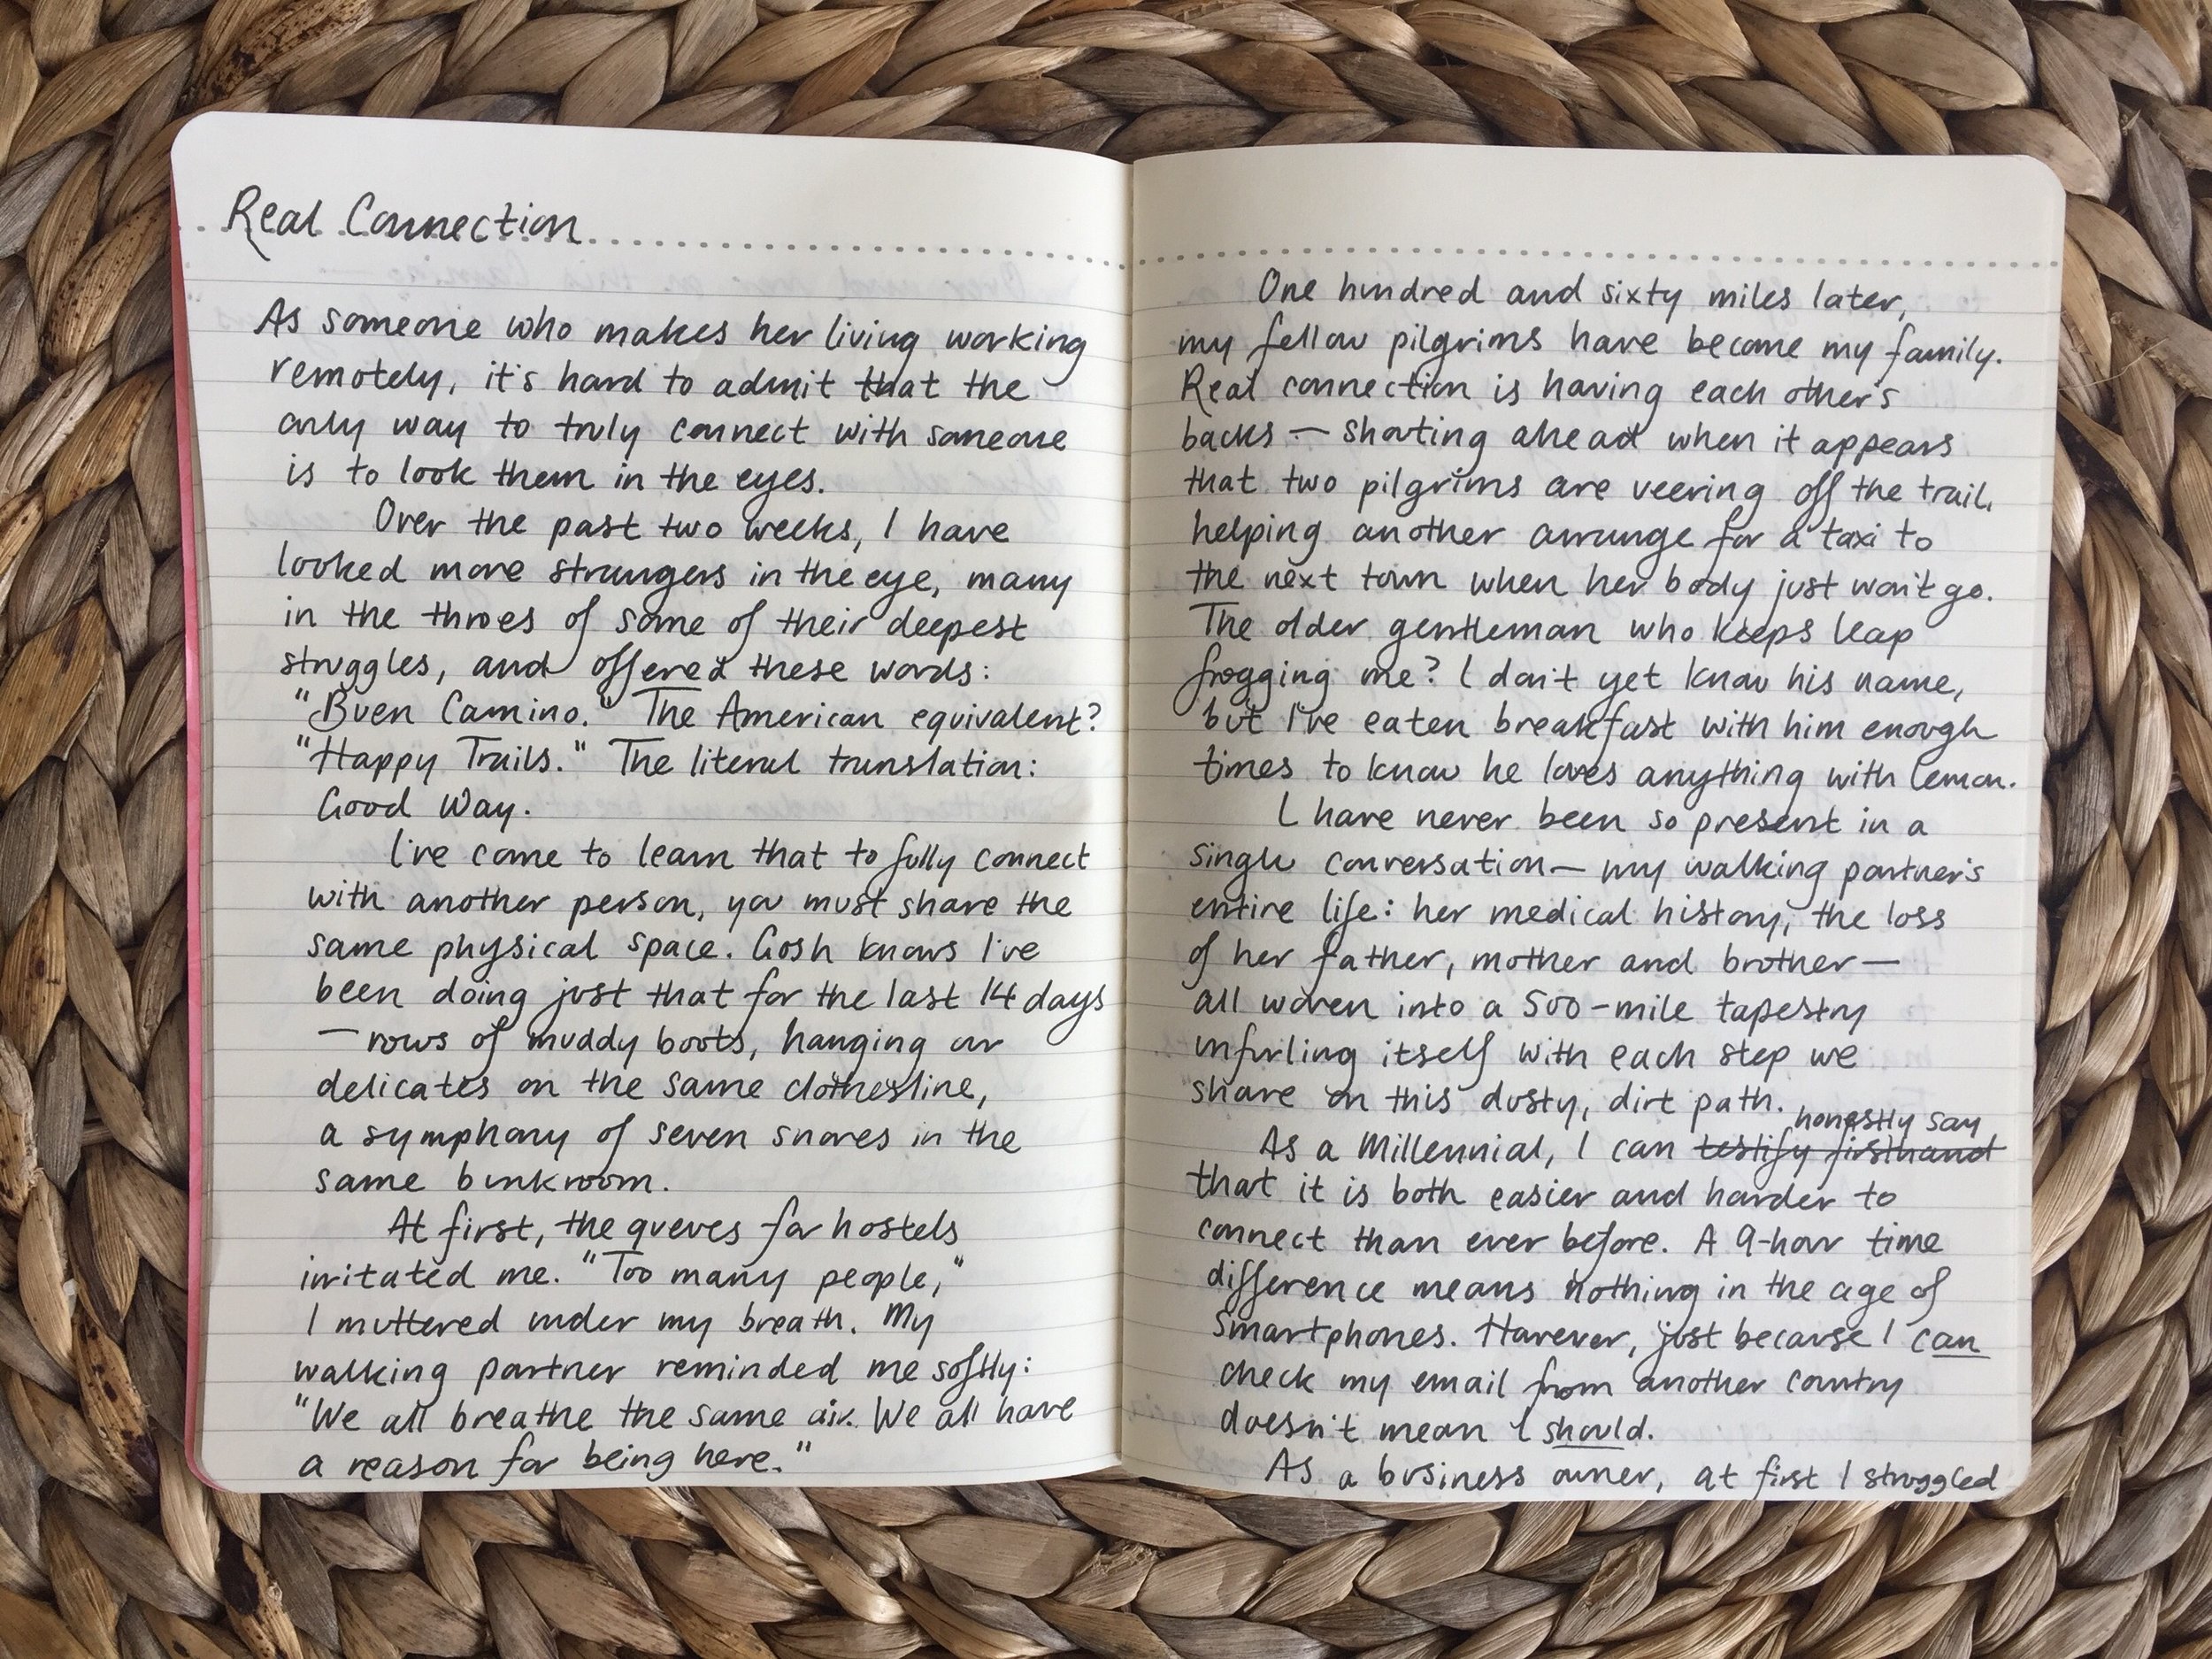 Real Connection
As someone who makes her living working
remotely, it's hard to admit that the
only way to truly connect with someone
is to look them in the eyes.
Over the past two weeks, I have
looked more strangers in the eye, many
in the throes of some of their deepest
struggles, and offered these words:
"Buen Camino." The American equivalent?
"Happy Trails." The literal translation:
Good Way.
I've come to learn that to fully connect
with another person, you must share the
same physical space. Gosh knows I've
been doing just that for the last 14 days
— rows of muddy boots, hanging our
delicates on the same clothesline,
a symphony of seven snores in the
same bunkroom.
At first, the queues for hostels
irritated me. "Too many people,"
I muttered under my breath. My
walking partner reminded me softly:
"We all breathe the same air. We all have
a reason for being here."
One hundred and sixty miles later,
my fellow pilgrims have become my family.
Real connection is having each other's
backs — shouting ahead when it appears
that two pilgrims are veering off the trail,
helping another arrange for a taxi to
the next town when her body just won't go.
The older gentleman who keeps leap
frogging me? I don't yet know his name,
but I've eaten breakfast with him enough
times to know he loves anything with lemon.
I have never been so present in a
single conversation — my walking partner's
entire life: her medical history, the loss
of her father, mother and brother —
all woven into a 500-mile tapestry
unfurling itself with each step we
share on this dusty, dirt path.
honestly say
As a Millennial, I can testify firsthand
that it is both easier and harder to
connect than ever before. A 9-hour time
difference means nothing in the age of
smartphones. However, just because I can
check my email from another country
doesn't mean I should.
As a business owner, at first I struggled